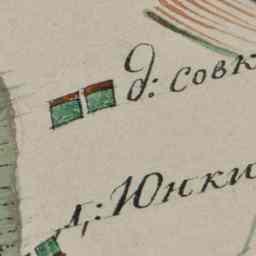 д: совк
д,: Юнки